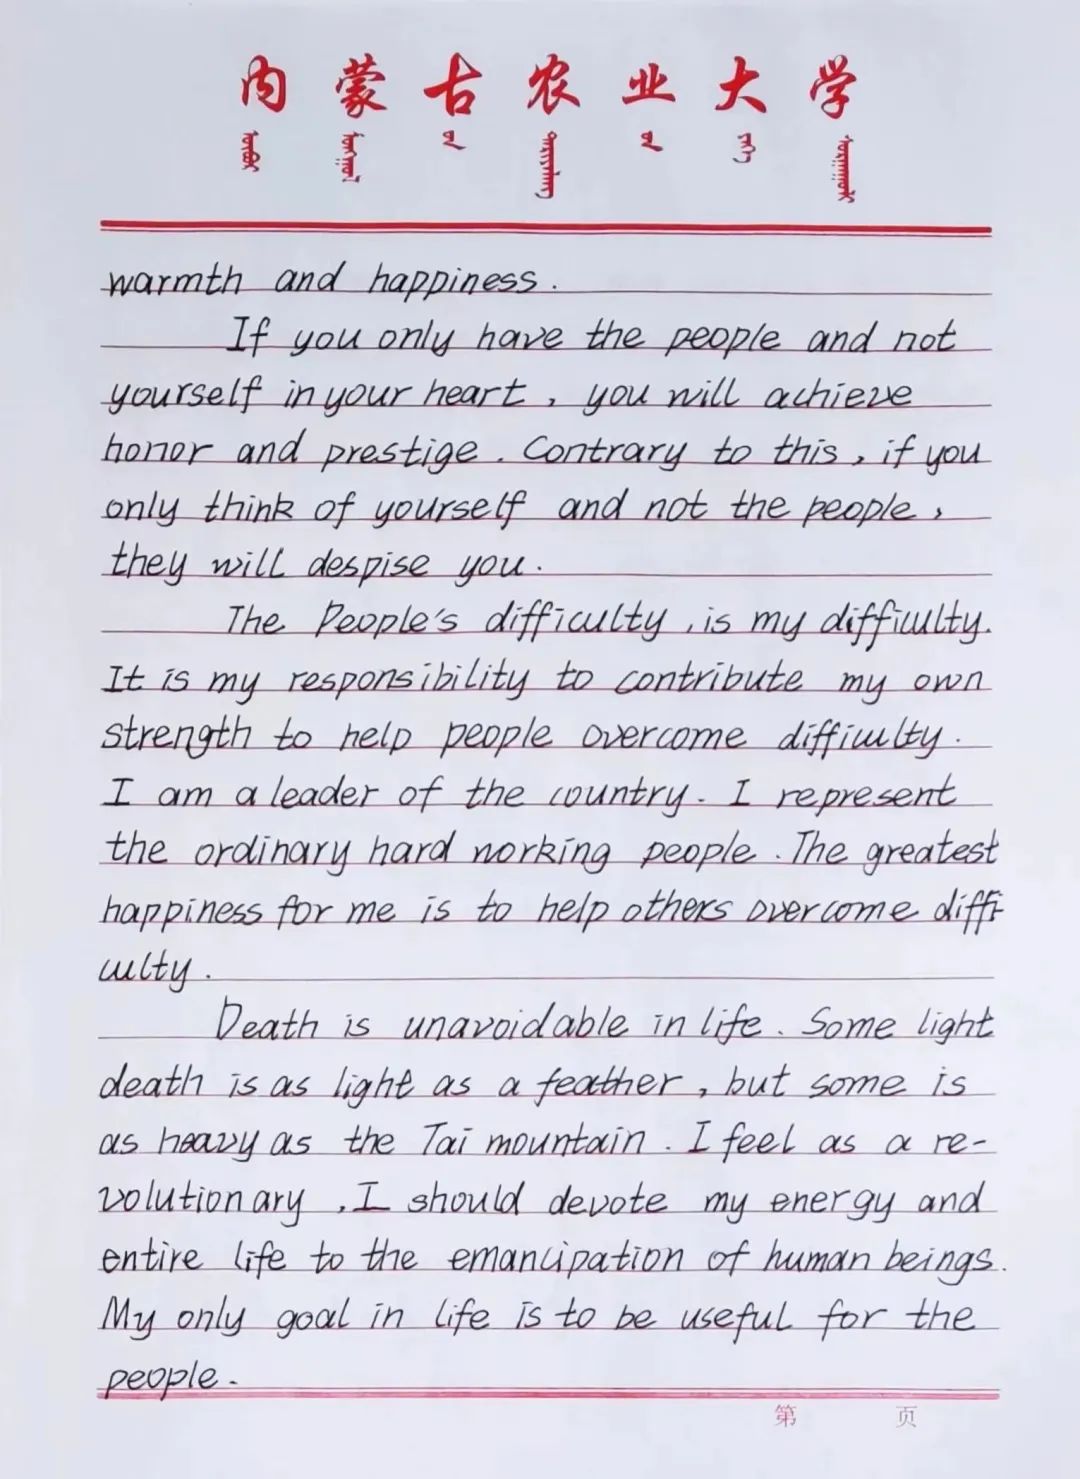 内蒙古农业大学
warmth and happiness.
If you only have the people and not
yourself in your heart, you will achieve
honor and prestige. Contrary to this, if you
only think of yourself and not the people,
they will despise you.
The People's difficulty, is my difficulty.
It is my responsibility to contribute my own
strength to help people overcome difficulty.
I am a leader of the country. I represent
the ordinary hard working people. The greatest
happiness for me is to help others overcome diffi-
culty.
Death is unavoidable in life. Some light
death is as light as a feather, but some is
as heavy as the Tai mountain. I feel as a re-
volutionary, I should devote my energy and
entire life to the emancipation of human beings.
My only goal in life is to be useful for the
people.
第 页